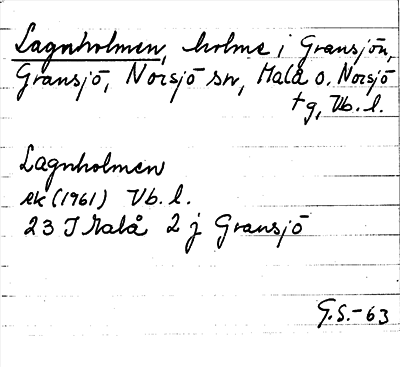 Lagnholmen, holme i Gransjön,
Gransjö, Norsjö sn, Malå o. Norsjö
tg, Vb. l.
Lagnholmen
ek (1961) Vb. l.
23 I Malå 2 j Gransjö
G.S.-63